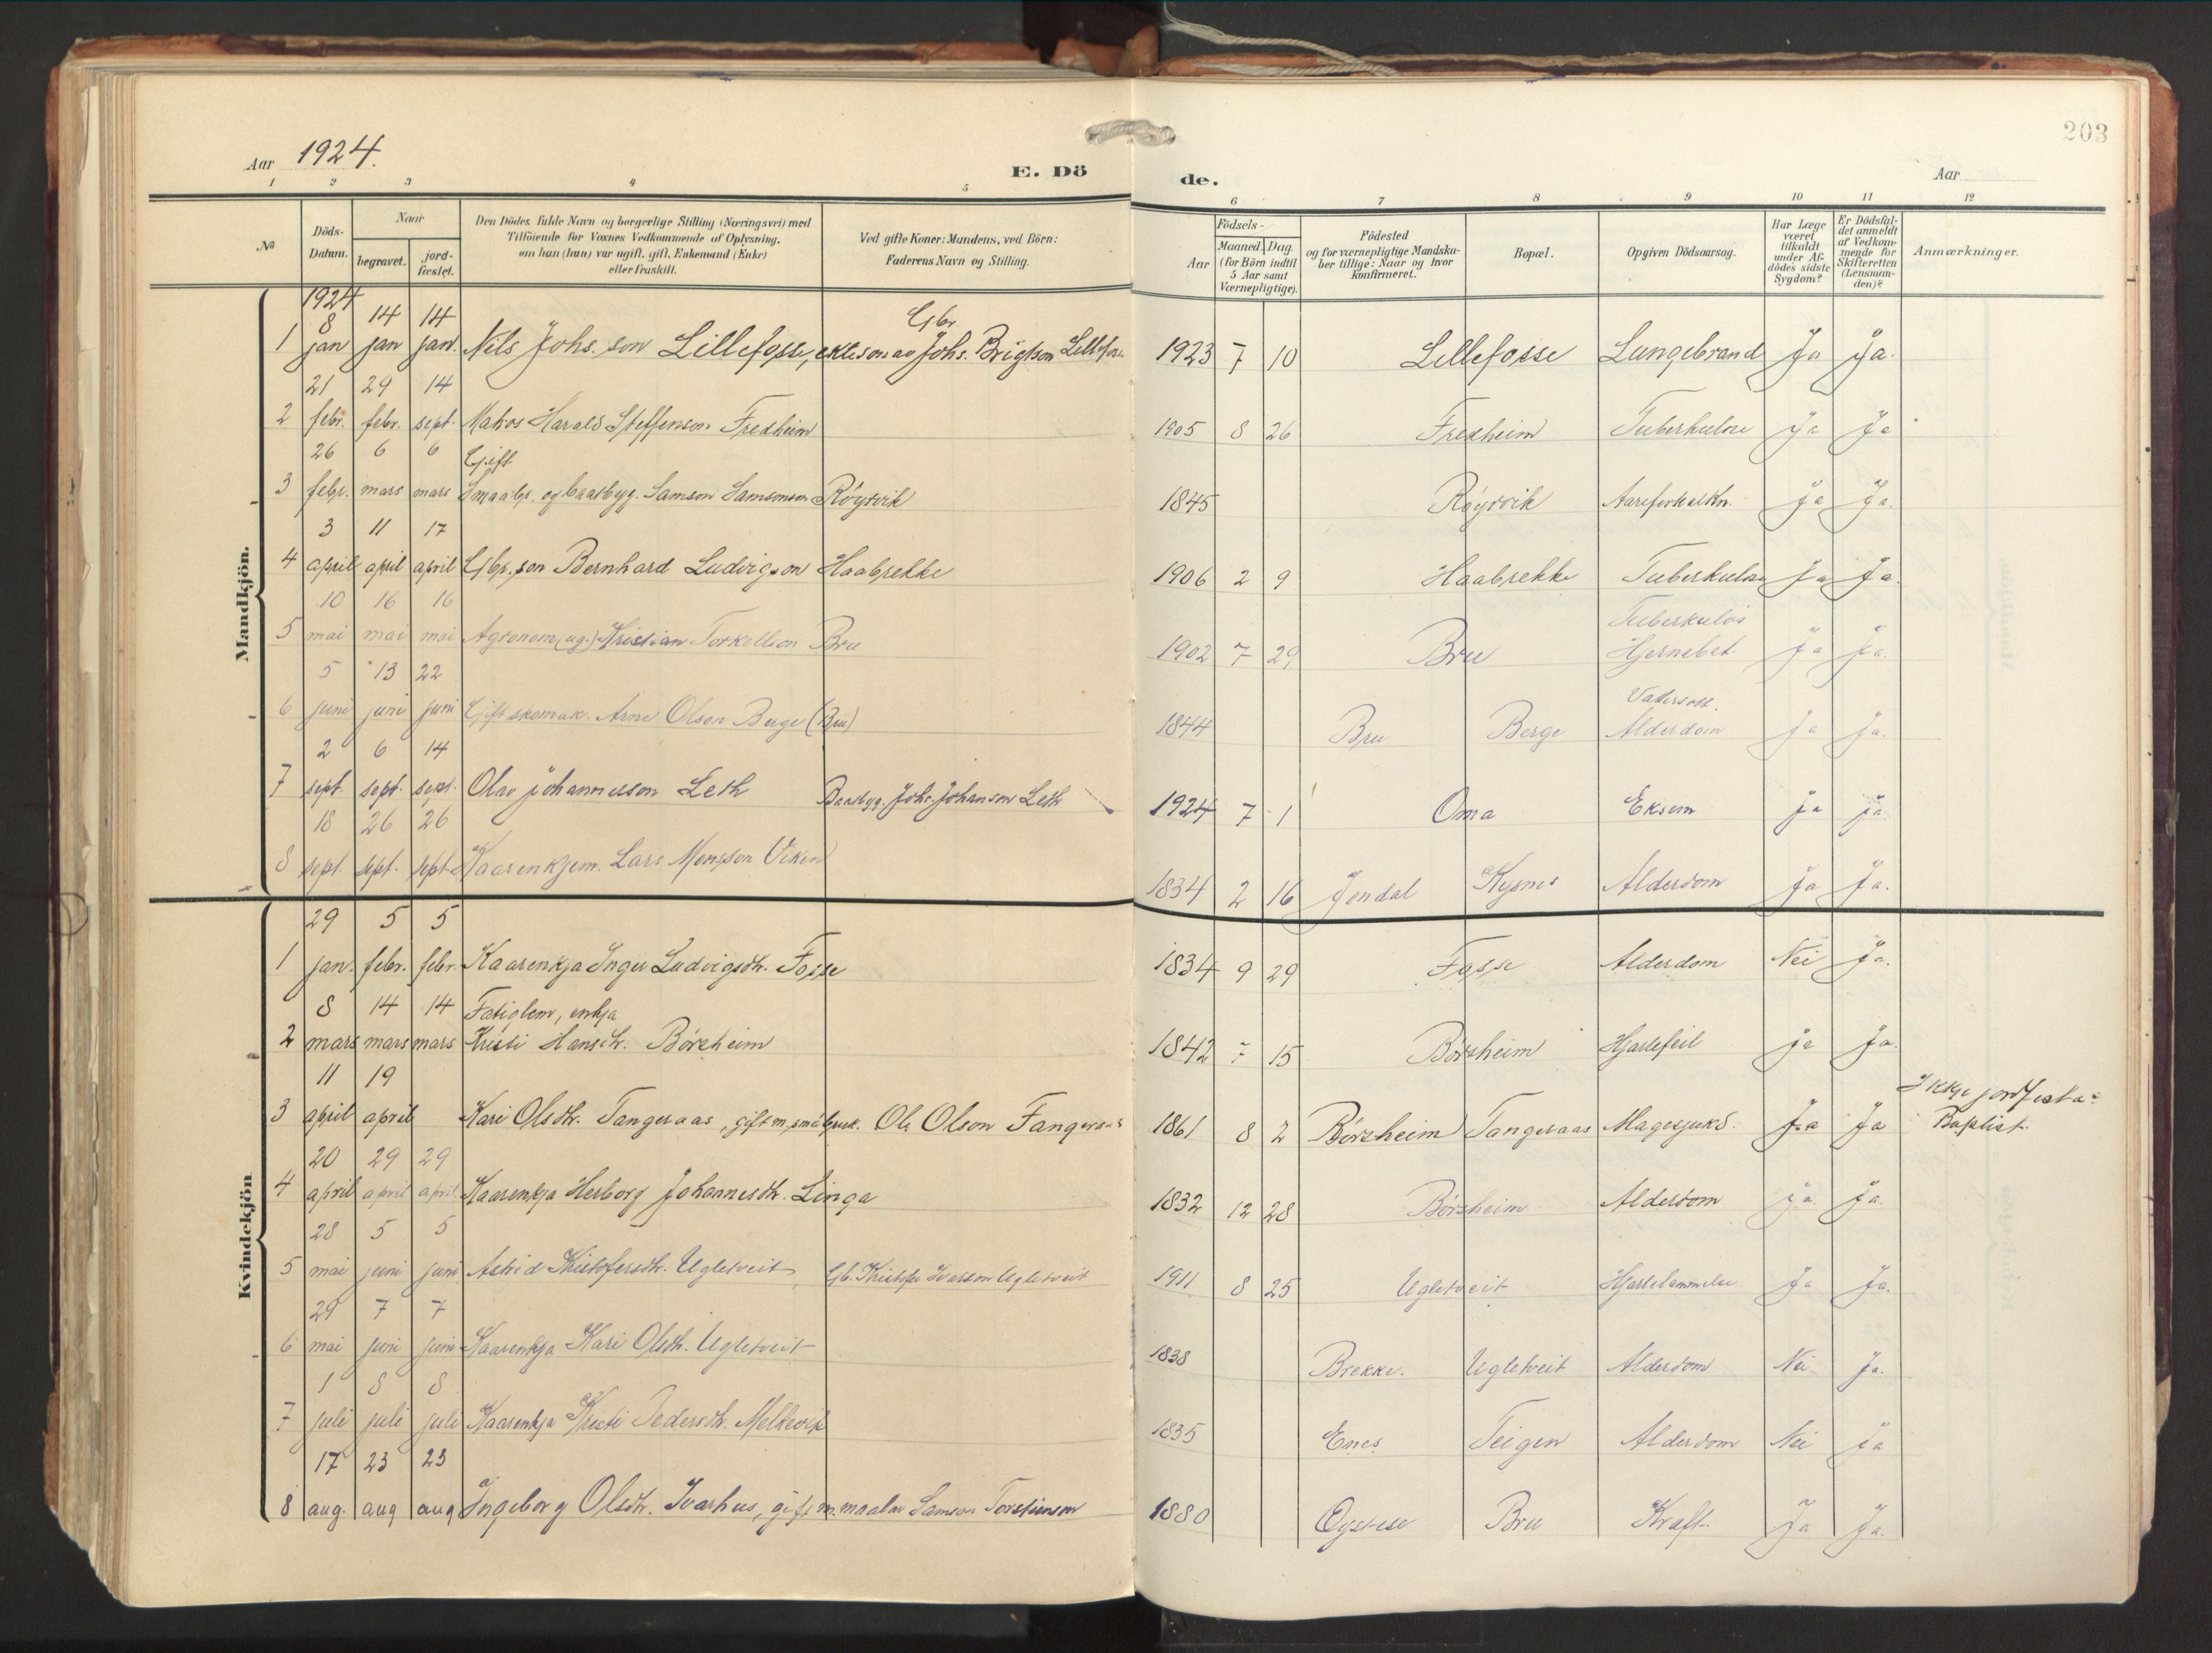 203
Aar 1924.
E. Dö de.
Aar
1 2 3 4 5 6 7 8 9 10 11 12
№
Döds-Datum.
Naar
begravet.
jord-fæstet.
Den Dödes fulde Navn og borgerlige Stilling (Næringsvei) med
Tilföiende for Voxnes Vedkommende af Oplysning,
om han (hun) var ugift, gift, Enkemand (Enke)
eller fraskilt.
Ved gifte Koner: Mandens, ved Börn:
Faderens Navn og Stilling.
Födsels-
Aar
Maaned. Dag.
(for Börn indtil
5 Aar samt
Værnepligtige).
Födested
og for værnepligtige Mandska-
ber tillige: Naar og hvor
konfirmeret.
Bopæl.
Opgiven Dödsaarsag.
Har Læge
været
tilkaldt
under Af-
dödes sidste
Sygdom?
Er Dödsfal-
det anmeldt
af Vedkom-
mende for
Skifteretten
(Lensman-
den)?
Anmærkninger.
Mandkjön.
1924
8 14 14 Gbr.
1 jan jan jan. Nils Johs. son Lillefosse, ekteson av Johs. Brigtson Lillefosse 1923 7 10 Lillefosse Lungebrand Ja Ja.
21 29 14
2 febr. febr. sept. Matros Harald Steffenson Fredheim 1905 8 26 Fredheim Tuberkulose Ja Ja
26 6 6 Gift
3 febr. mars mars Smaabr. og baatbyg. Samson Samsonson Röyrvik 1845 Röyrvik Aareforkalkn. Ja Ja.
3 11 17
4 april april april Gbr. son Bernhard Ludvigson Haabrekke 1906 2 9 Haabrekke Tuberkulose Ja Ja.
10 16 16 Tuberkulös
5 mai mai mai Agronom (ug.) Kristian Torkellson Bru 1902 7 29 Bru Hjernebet Ja Ja.
5 13 22 Vatersott.
6 juni juni juni Gift skomak. Arne Olson Berge (Bru) 1844 Bru Berge Alderdom Ja Ja.
2 6 14
7 sept. sept. sept. Olav Johannesson Leth Baatbyg. Johs. Johanson Leth 1924 7 1 Oma Eksem Ja Ja
18 26 26
8 sept. sept. sept. Kaarenkjem. Lars Monsson Viken 1834 2 16 Jondal Kysnes Alderdom Ja Ja.
Kvindekjön
29 5 5
1 jan. febr. febr. Kaarenkja Inger Ludvigsdtr. Fosse 1834 9 29 Fosse Alderdom Nei Ja.
8 14 14 Fatiglem, enkja
2 mars mars mars Kristi Hansdtr. Börsheim 1842 7 15 Börsheim Hjartefeil Ja Ja.
11 19 Ikkje jordfesta:
3 april april Kari Olsdtr. Tangeraas, gift m. småbruk. Ole Olson Tangeraas 1861 8 2 Börsheim Tangeraas Magesjukd. Ja Ja Baptist.
20 29 29
4 april april april Kaarenkja Herborg Johannesdtr. Linga 1832 12 28 Börsheim Alderdom Ja Ja.
28 5 5
5 mai juni juni Astrid Kristofersdtr. Ugletveit, Gb. Kristofer Ivarson Ugletveit 1911 8 25 Ugletveit Hjartelammelse Ja Ja.
29 7 7
6 mai juni juni Kaarenkja Kari Olsdtr. Ugletveit 1838 Brekke. Ugletveit Alderdom Nei Ja.
1 8 8
7 juli juli juli Kaarenkja Kristi Pedersdtr. Melkevik 1835 Enes Teigen Alderdom Nei Ja
17 23 23
8 aug. aug aug Ingeborg Olsdtr. Ivarhus, gift m. maalar Samson Torsteinson 1880 Oystese Bru Kraft. Ja Ja.